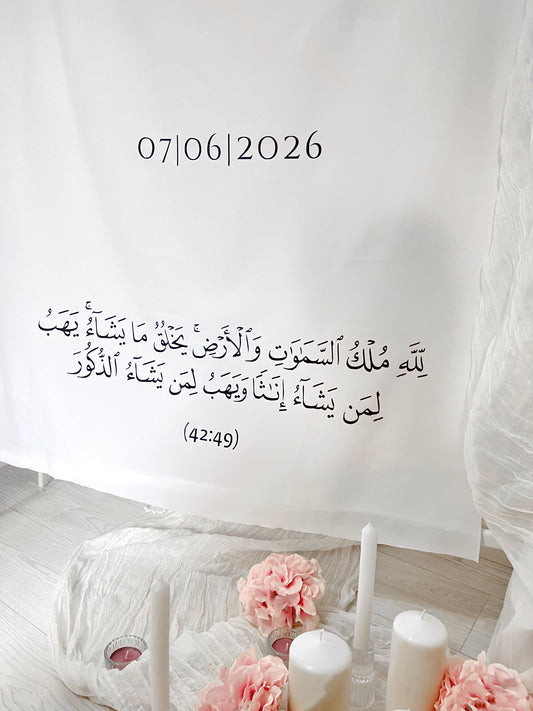 07|06|2026
لِّلَّهِ مُلْكُ ٱلسَّمَـٰوَٰتِ وَٱلْأَرْضِ ۚ يَخْلُقُ مَا يَشَآءُ ۚ يَهَبُ
لِمَن يَشَآءُ إِنَـٰثًا وَيَهَبُ لِمَن يَشَآءُ ٱلذُّكُورَ
(42:49)